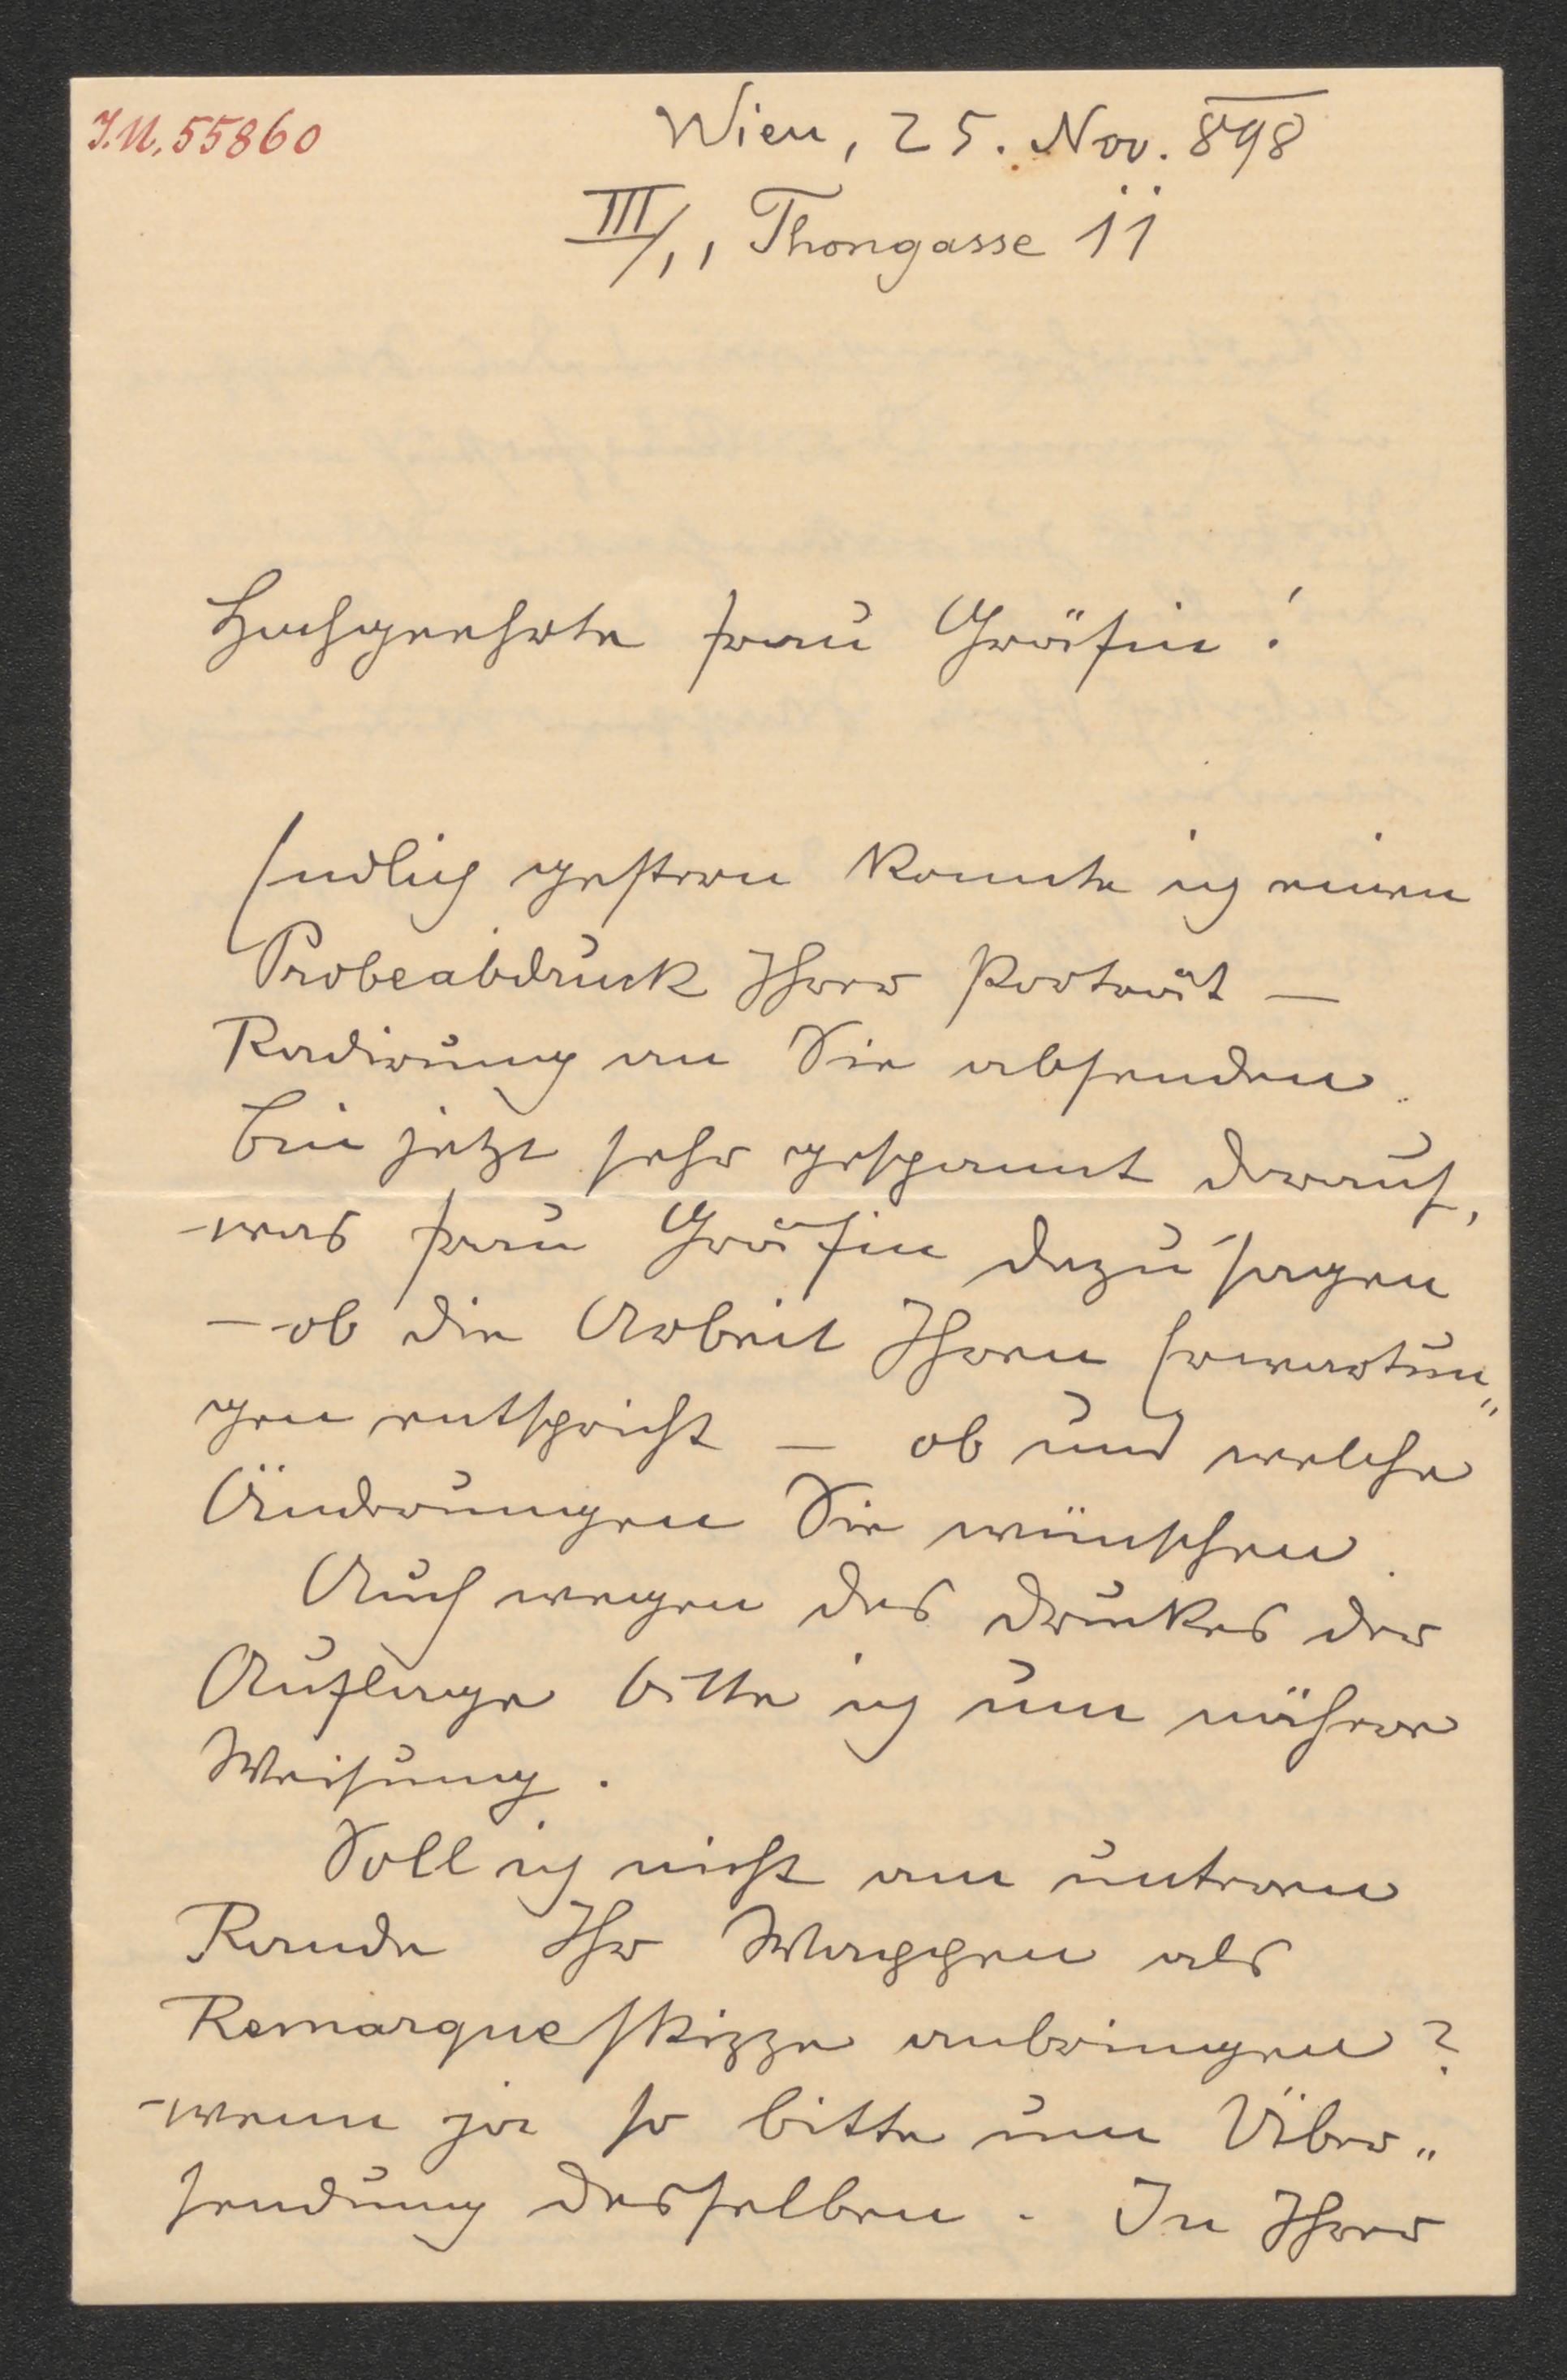 I.N. 55860
Wien, 25. Nov. 898
III/1, Thongasse 11
Hochgeehrte Frau Gräfin!
Endlich gestern konnte ich einen
Probeabdruck Ihrer Porträt –
Radirung an Sie absenden.
Bin jetzt sehr gespannt darauf,
was Frau Gräfin dazu sagen
– ob die Arbeit Ihren Erwartun„
gen entspricht – ob und welche
Änderungen Sie wünschen.
Auch wegen des Druckes der
Auflage bitte ich um nähere
Weisung.
Soll ich nicht am unteren
Rande Ihr Wappen als
Remarqueskizze anbringen?
wenn ja so bitte um Über„
sendung desselben. In Ihrer